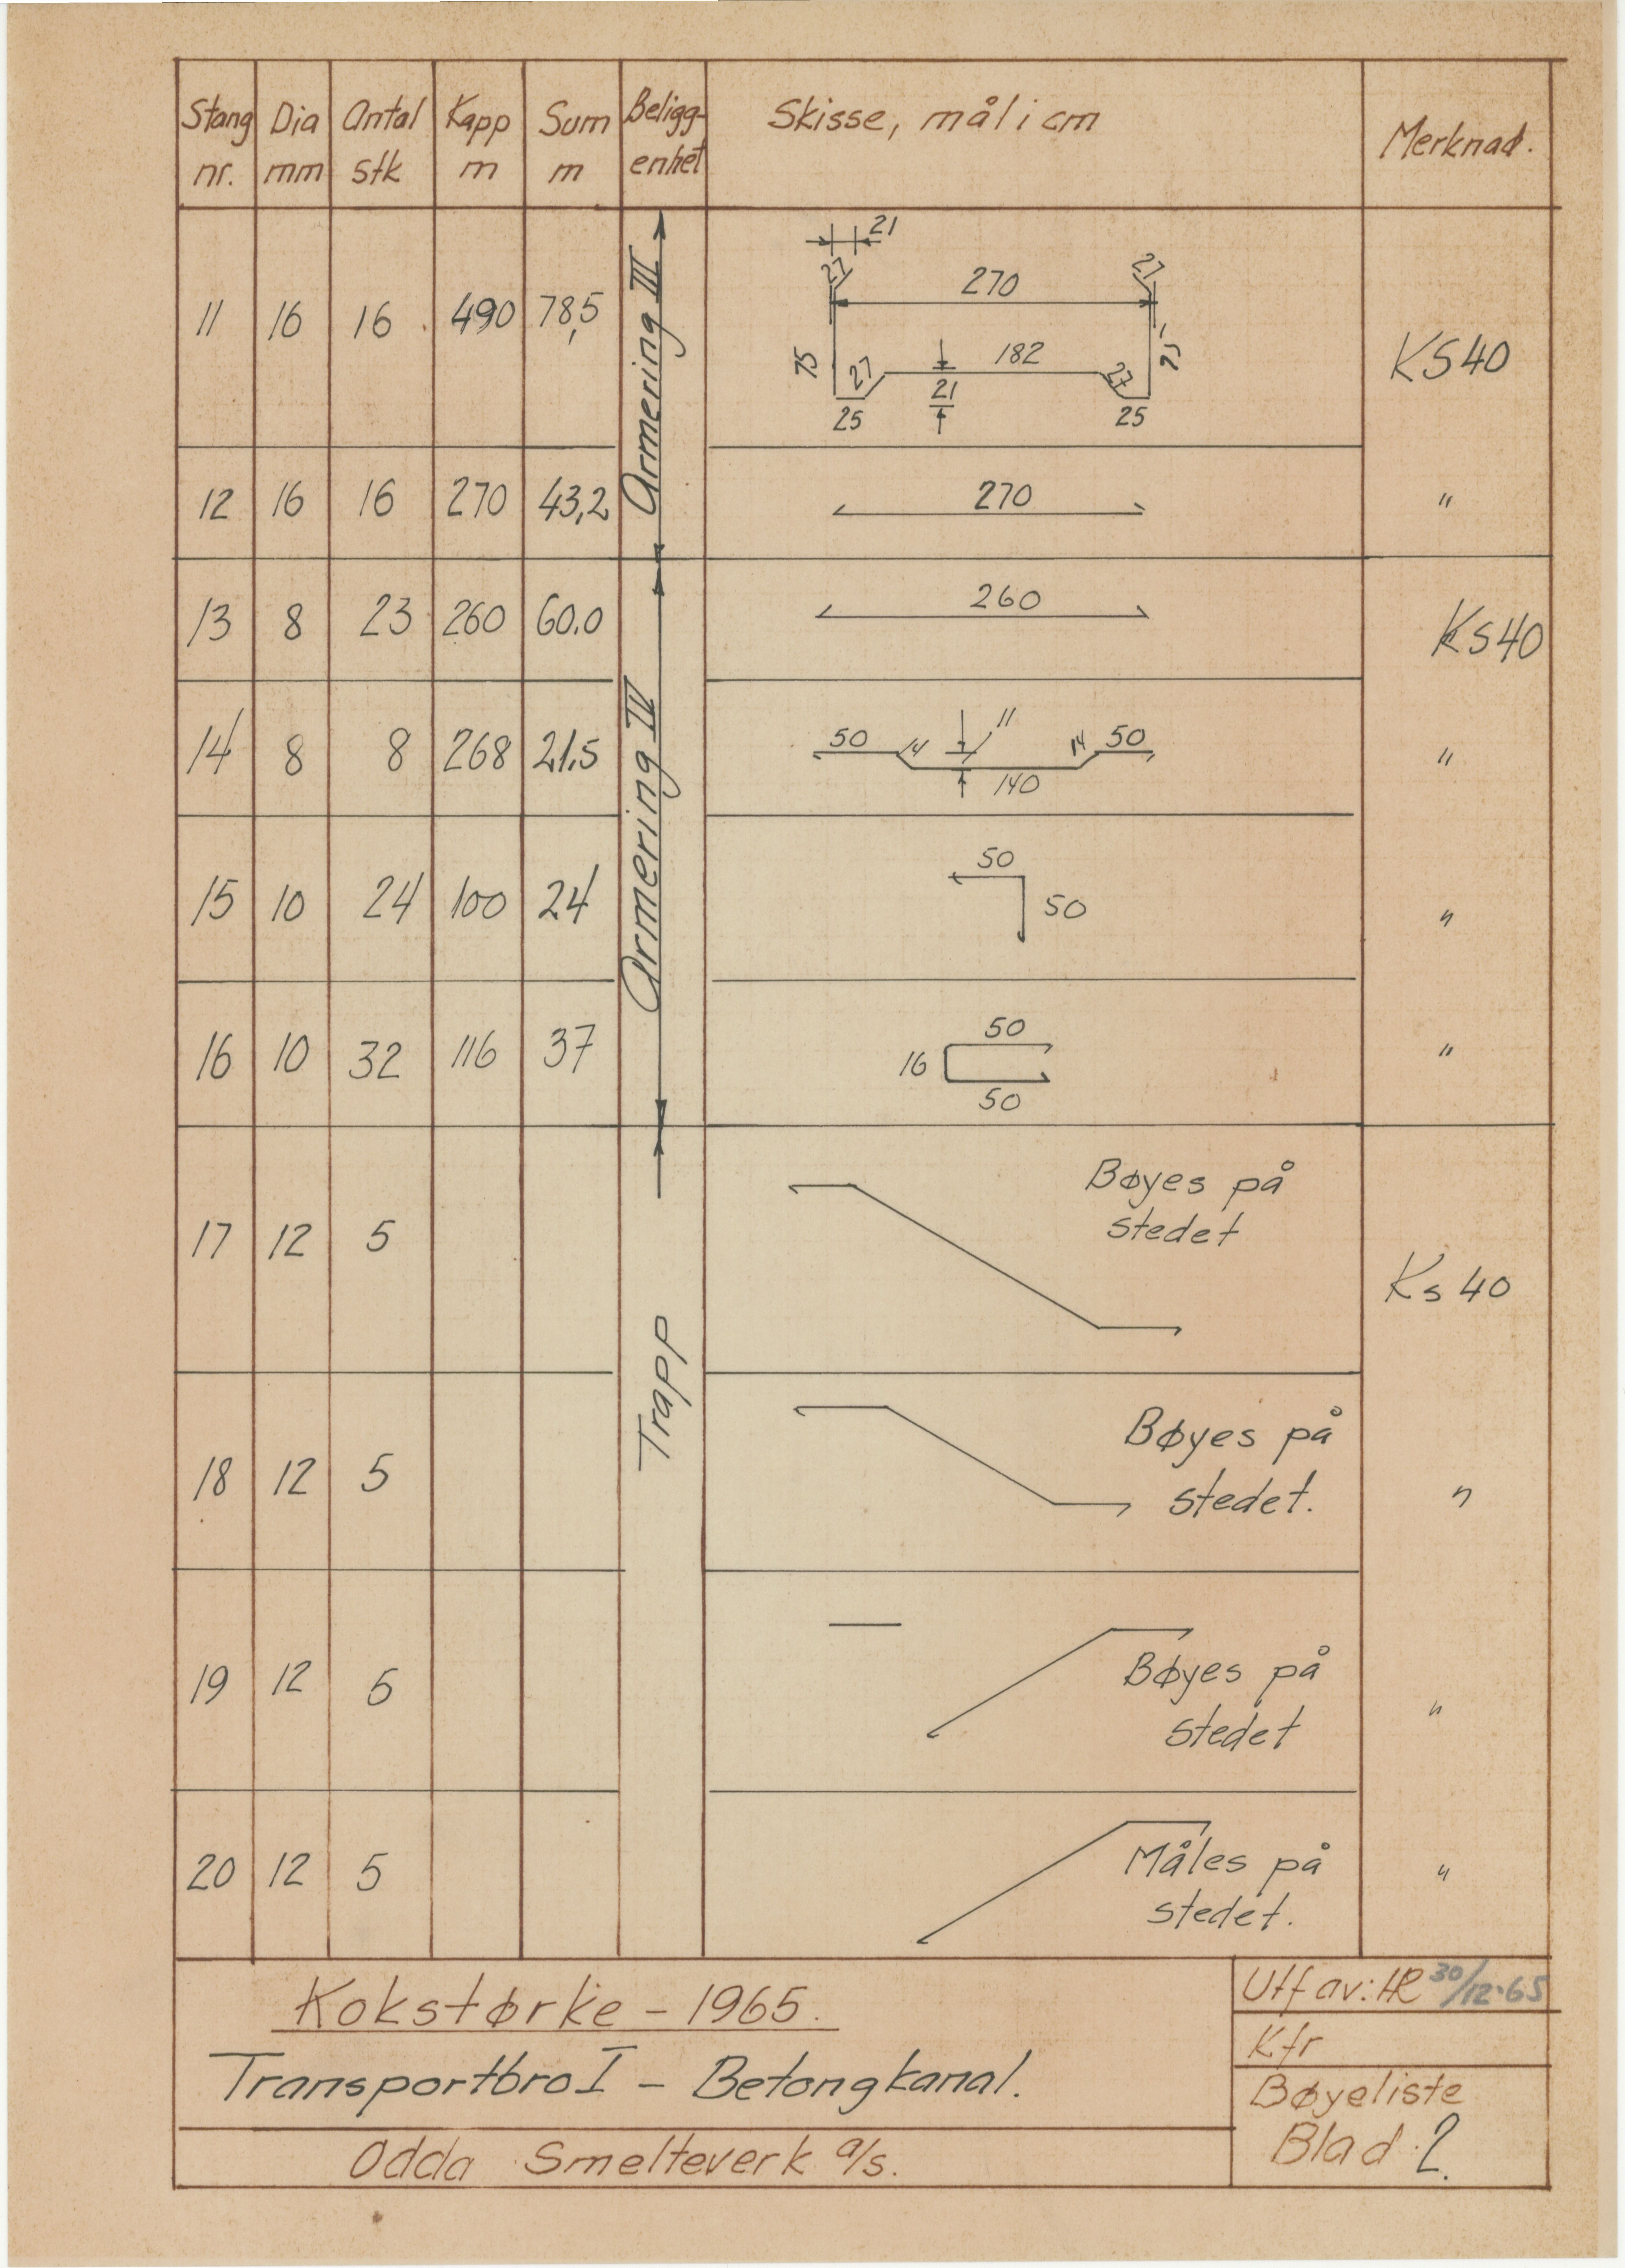 Stang nr. Dia mm Antal stk Kapp m Sum m Beligg-enhet Skisse, mål i cm Merknad.
21
27 27
270
11 16 16 490 78,5 75 27 182 27 75 KS40
21
25 25
Armering III
12 16 16 270 43,2 270 "
13 8 23 260 60.0 260 KS40
11
14 8 8 268 21.5 50 14 14 50 "
140
Armering IV
50
15 10 24 100 24 50 "
50
16 10 32 116 37 16 "
50
Bøyes på
stedet
17 12 5 Ks 40
Trapp
Bøyes på
18 12 5 stedet. "
Bøyes på
19 12 5 stedet "
Måles på
20 12 5 stedet. "
Kokstørke - 1965.
Transportbro I - Betongkanal.
Odda Smelteverk a/s.
Utf av: HR 30/12-65
Kfr
Bøyeliste
Blad 2.